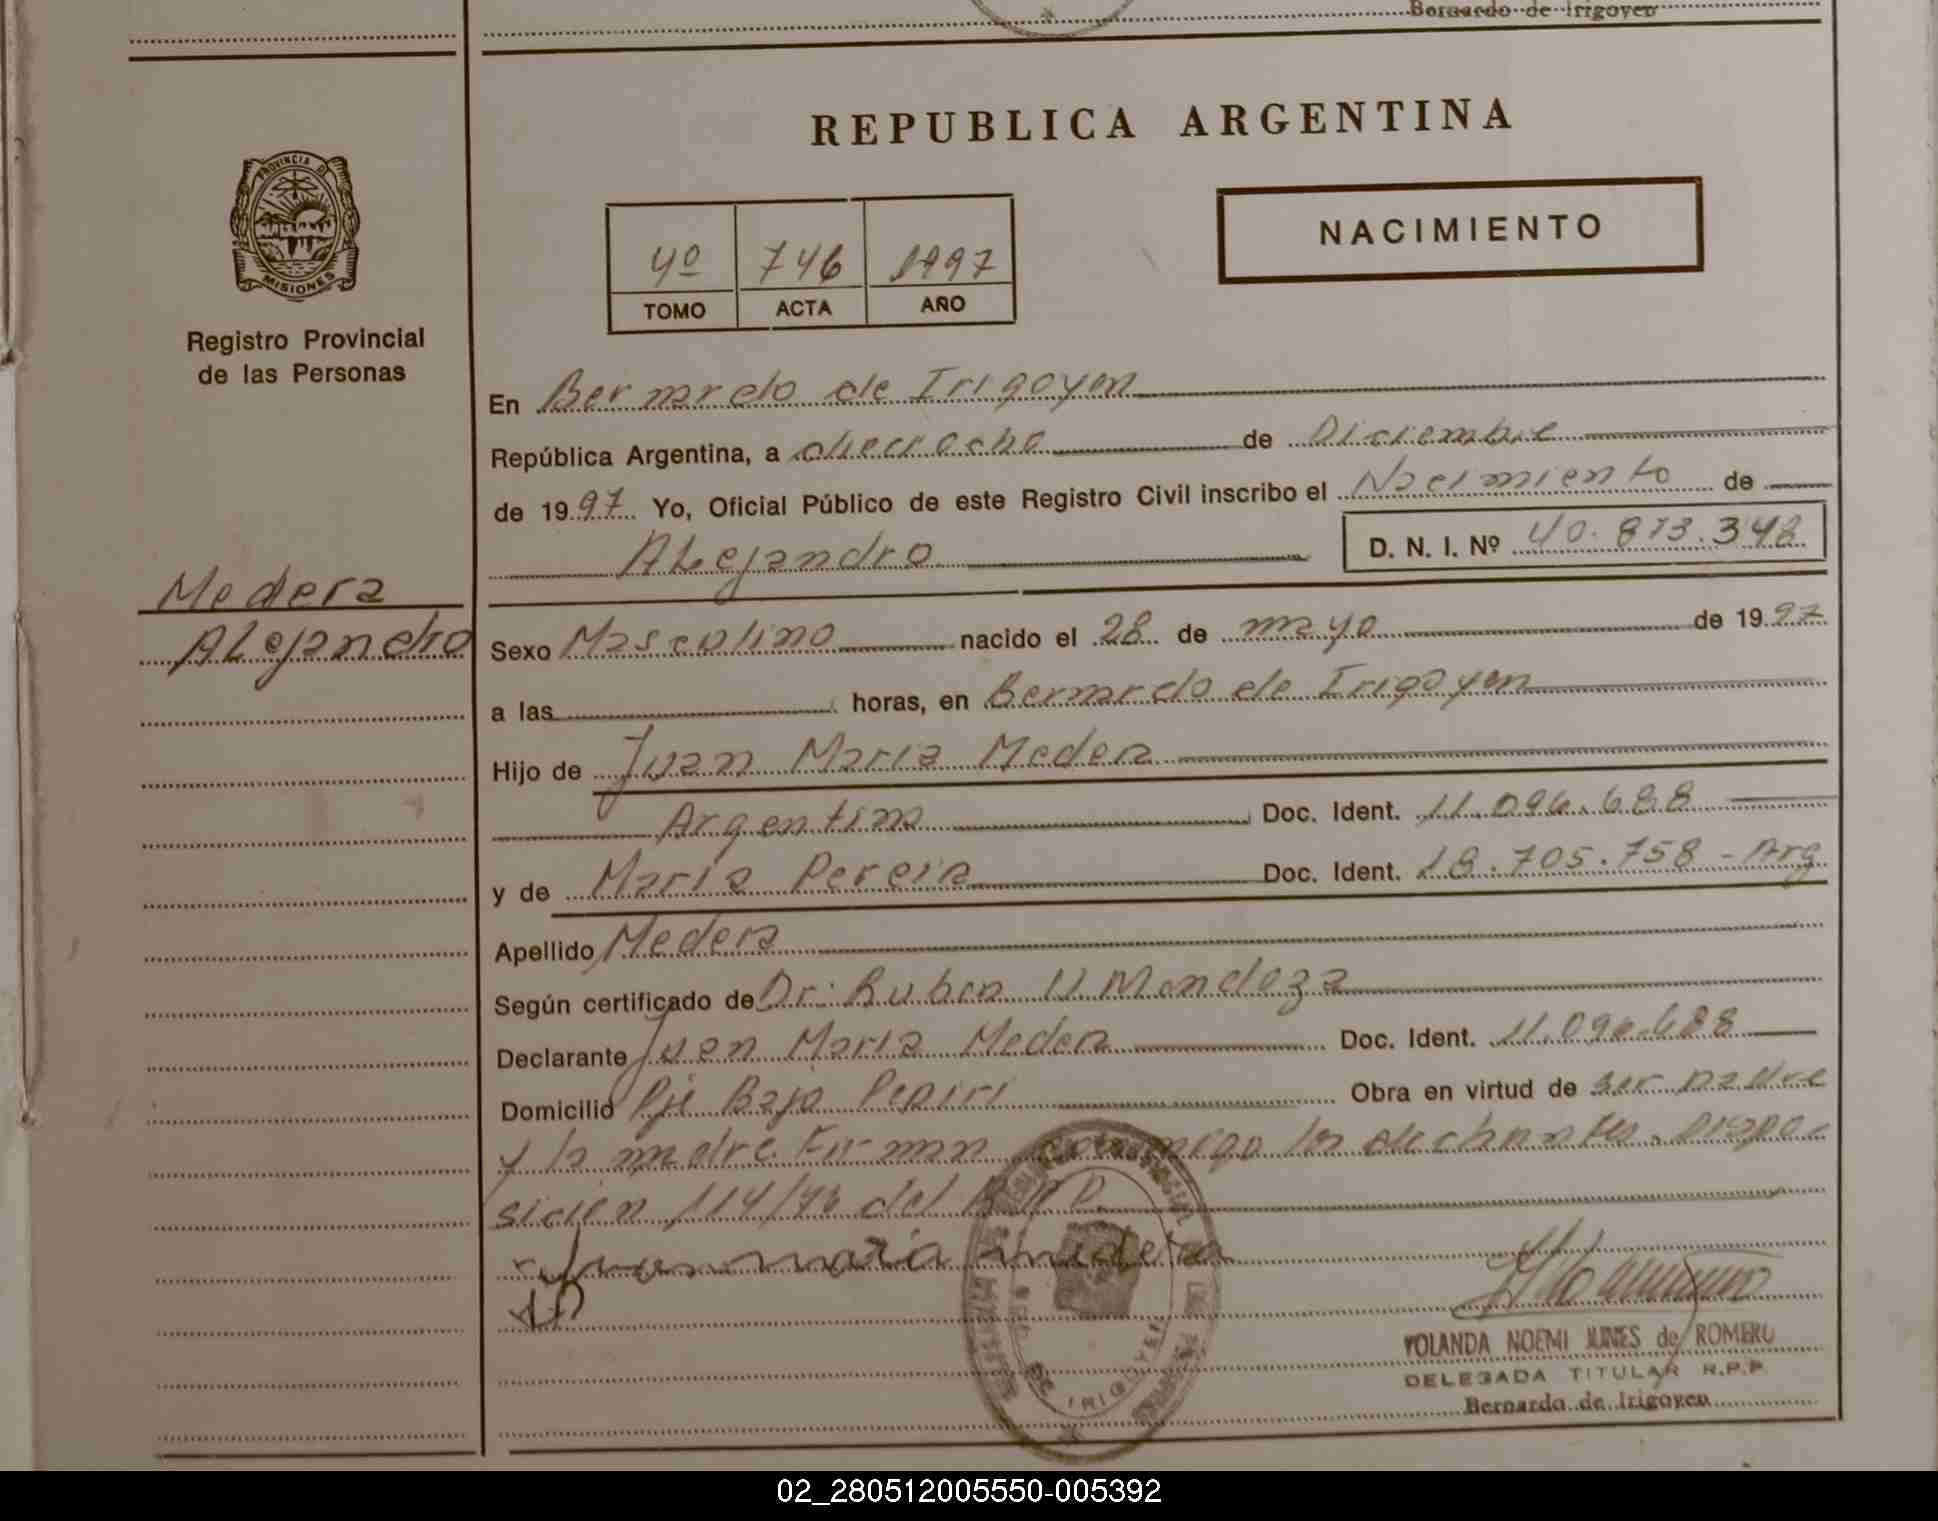 Bernardo de Irigoyen
REPUBLICA ARGENTINA
PROVINCIA DE
MISIONES
Registro Provincial
de las Personas
4º 746 1997
TOMO ACTA AÑO
NACIMIENTO
En Bernardo de Irigoyen
República Argentina, a dieciocho de Diciembre
de 1997 Yo, Oficial Público de este Registro Civil inscribo el Nacimiento de
Alejandro D. N. I. Nº 40.873.348
Medera
Alejandro
Sexo Masculino nacido el 28 de mayo de 1997
a las horas, en Bernardo de Irigoyen
Hijo de Juan Maria Medera
Argentina Doc. Ident. 11.096.688
y de Maria Pereira Doc. Ident. 18.705.758 - Arg
Apellido Medera
Según certificado de Dr: Ruben U. Mendoza
Declarante Juan Maria Medera Doc. Ident. 11.096.688
Domicilio Pje Bajo Pepiri Obra en virtud de ser padre
y la madre. Firman conmigo los declarantes. Dispo-
sición 114/76 del R.P.P.
Juan maria medera
YOLANDA NOEMI de ROMERO
DELEGADA TITULAR R.P.P.
Bernardo de Irigoyen
02_280512005550-005392